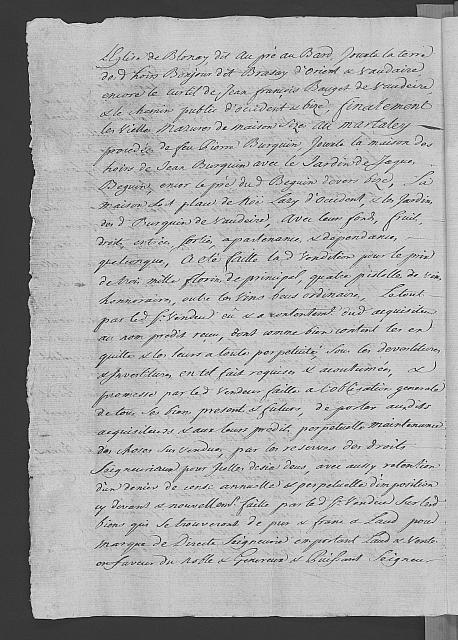 L'Eglise de Blonay dit Au pré au Bard, Jouxte la terre
des d hoirs Bonjour dit Brassay d'Orient & Vaudaire
encore le curtil de Jean françois Bouget de Vaudeire
& le Chemin public d'occident & bize, finalement
les Vielles Mazures de maison Size au martaley
procedée de feu Pierre Burquin Jouxte la maison des
hoirs de Jean Burquin avec le Jardin de Jaque
Beguin, encor le pré du d Beguin devers bize, La
maison & place de Lazy d'Occident, & les Jardin
des d Burquin de Vaudeire, Avec leurs fonds, fruit,
droits, entrée, sortie, apartenance, & dependance,
quelconque, A eté faitte la d Vendition pour le prix
de trois mille florin de principal, quatre pistolle de vin
honnoraire, outre les Vins bus ordinaire, Le tout
par led Sr Vendeur eü & à contentement dud acquisiteur
au nom predit reçu, dont comme bien content les en
quitte & les leurs a toute perpetuité, Sous les devestitures
& Investitures, en tel fait requises & acoutumées, &
promesse par led Vendeur faitte a l'obligation generale
de tous ses bien present & futurs, de porter audits
acquisiteurs & aux leurs predit, perpetuelle maintenance
des choses Sus vendue, par les reserves des droits
Seigneuriaux pour jcelles choses deus, avec aussy retention
d'un denier de cense annuelle & perpetuelle d'imposition
cy devant & nouvellement faitte par led Sr Vendeur Sur lesd
biens qui se trouveront de pur & franc a Laud pour
marque de Directe Seigneurie emportant Laud & Vente
en faveur du Noble & Genereux & Puissant Seigneur